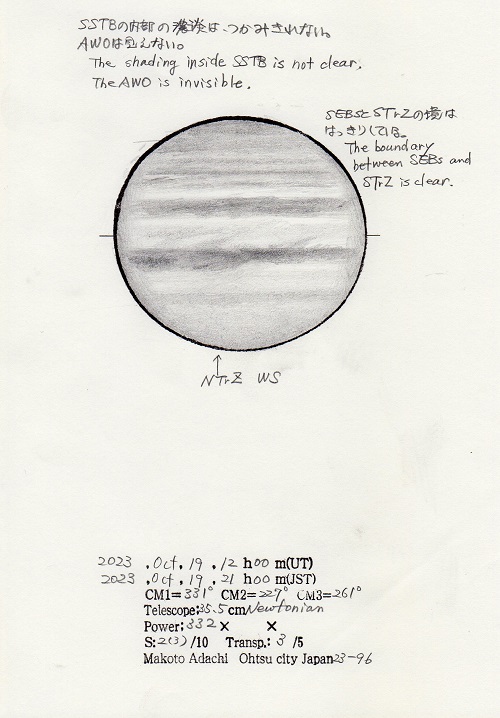 SSTBの内部の濃淡は、つかみきれない。
AWOは見えない。
The shading inside SSTB is not clear.
The AWO is invisible.
SEBsとSTrZの境は
はっきりしている。
The boundary
between SEBs and
STrZ is clear.
NTrZ WS
2023 .Oct. 19 .12 h00 m(UT)
2023 .Oct. 19 .21 h00 m(JST)
CM1=331° CM2=227° CM3=261°
Telescope:35.5cmNewtonian
Power:332× ×
S:2(3)/10 Transp.: 3 /5
Makoto Adachi Ohtsu city Japan23-96